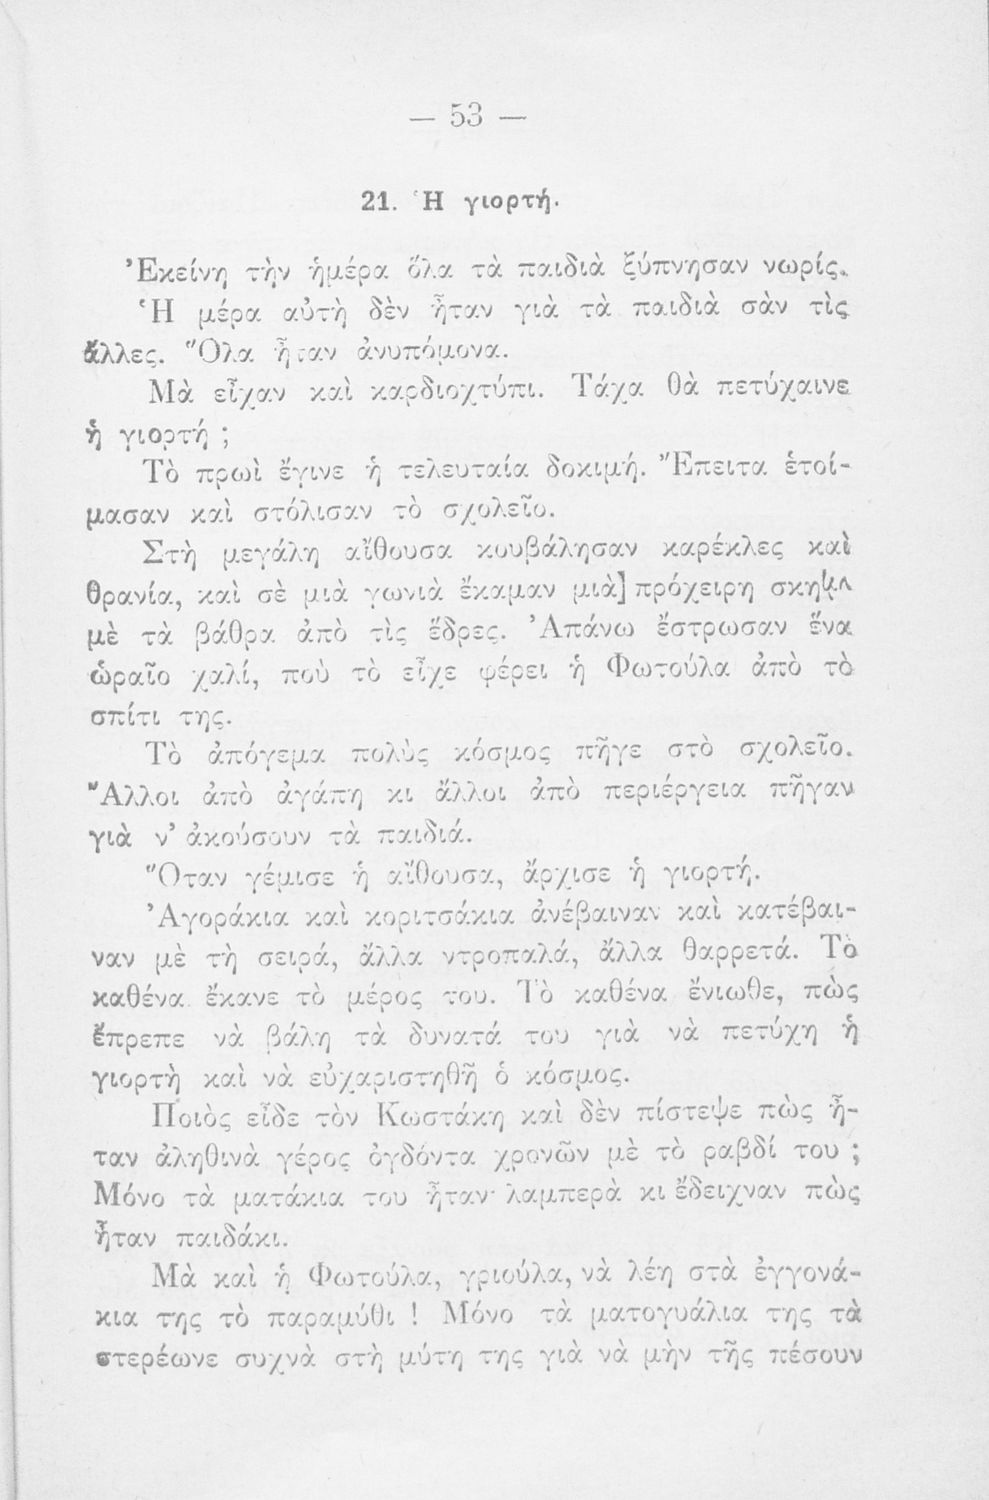 — 53 —
21. Ἡ γιορτή.
Ἐκείνη τὴν ἡμέρα ὅλα τὰ παιδιὰ ξύπνησαν νωρίς.
Ἡ μέρα αὐτὴ δὲν ἦταν γιὰ τὰ παιδιὰ σὰν τὶς
ἄλλες. Ὅλα ἦταν ἀνυπόμονα.
Μὰ εἶχαν καὶ καρδιοχτύπι. Τάχα θὰ πετύχαινε
ἡ γιορτή ;
Τὸ πρωὶ ἔγινε ἡ τελευταία δοκιμή. Ἔπειτα ἑτοί-
μασαν καὶ στόλισαν τὸ σχολεῖο.
Στὴ μεγάλη αἴθουσα κουβάλησαν καρέκλες καὶ
θρανία, καὶ σὲ μιὰ γωνιὰ ἔκαμαν μιὰ] πρόχειρη
μὲ τὰ βάθρα ἀπὸ τὶς ἕδρες. Ἀπάνω ἔστρωσαν ἕνα
ὡραῖο χαλί, ποὺ τὸ εἶχε φέρει ἡ Φωτούλα ἀπὸ τὸ
σπίτι της.
Τὸ ἀπόγεμα πολὺς κόσμος πῆγε στὸ σχολεῖο.
Ἄλλοι ἀπὸ ἀγάπη κι ἄλλοι ἀπὸ περιέργεια πῆγαν
γιὰ ν’ ἀκούσουν τὰ παιδιά.
Ὅταν γέμισε ἡ αἴθουσα, ἄρχισε ἡ γιορτή.
Ἀγοράκια καὶ κοριτσάκια ἀνέβαιναν καὶ κατέβαι-
ναν μὲ τὴ σειρά, ἄλλα ντροπαλά, ἄλλα θαρρετά. Τὸ
καθένα ἔκανε τὸ μέρος του. Τὸ καθένα ἔνιωθε, πὼς
ἔπρεπε νὰ βάλη τὰ δυνατά του γιὰ νὰ πετύχη ἡ
γιορτὴ καὶ νὰ εὐχαριστηθῆ ὁ κόσμος.
Ποιὸς εἶδε τὸν Κωστάκη καὶ δὲν πίστεψε πὼς ἦ-
ταν ἀληθινὰ γέρος ὀγδόντα χρονῶν μὲ τὸ ραβδί του ;
Μόνο τὰ ματάκια του ἦταν λαμπερὰ κι ἔδειχναν πὼς
ἦταν παιδάκι.
Μὰ καὶ ἡ Φωτούλα, γριούλα, νὰ λέη στὰ ἐγγονά-
κια της τὸ παραμύθι ! Μόνο τὰ ματογυάλια της τὰ
στερέωνε συχνὰ στὴ μύτη της γιὰ νὰ μὴν τῆς πέσουν